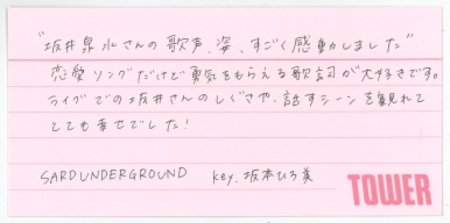 "坂井泉水さんの歌声、姿、すごく感動しました"
恋愛ソングだけど勇気をもらえる歌詞が大好きです。
ライブでの坂井さんのしぐさや、話すシーンを観れて
とても幸せでした!
SARD UNDERGROUND key. 坂本ひろ美
TOWER